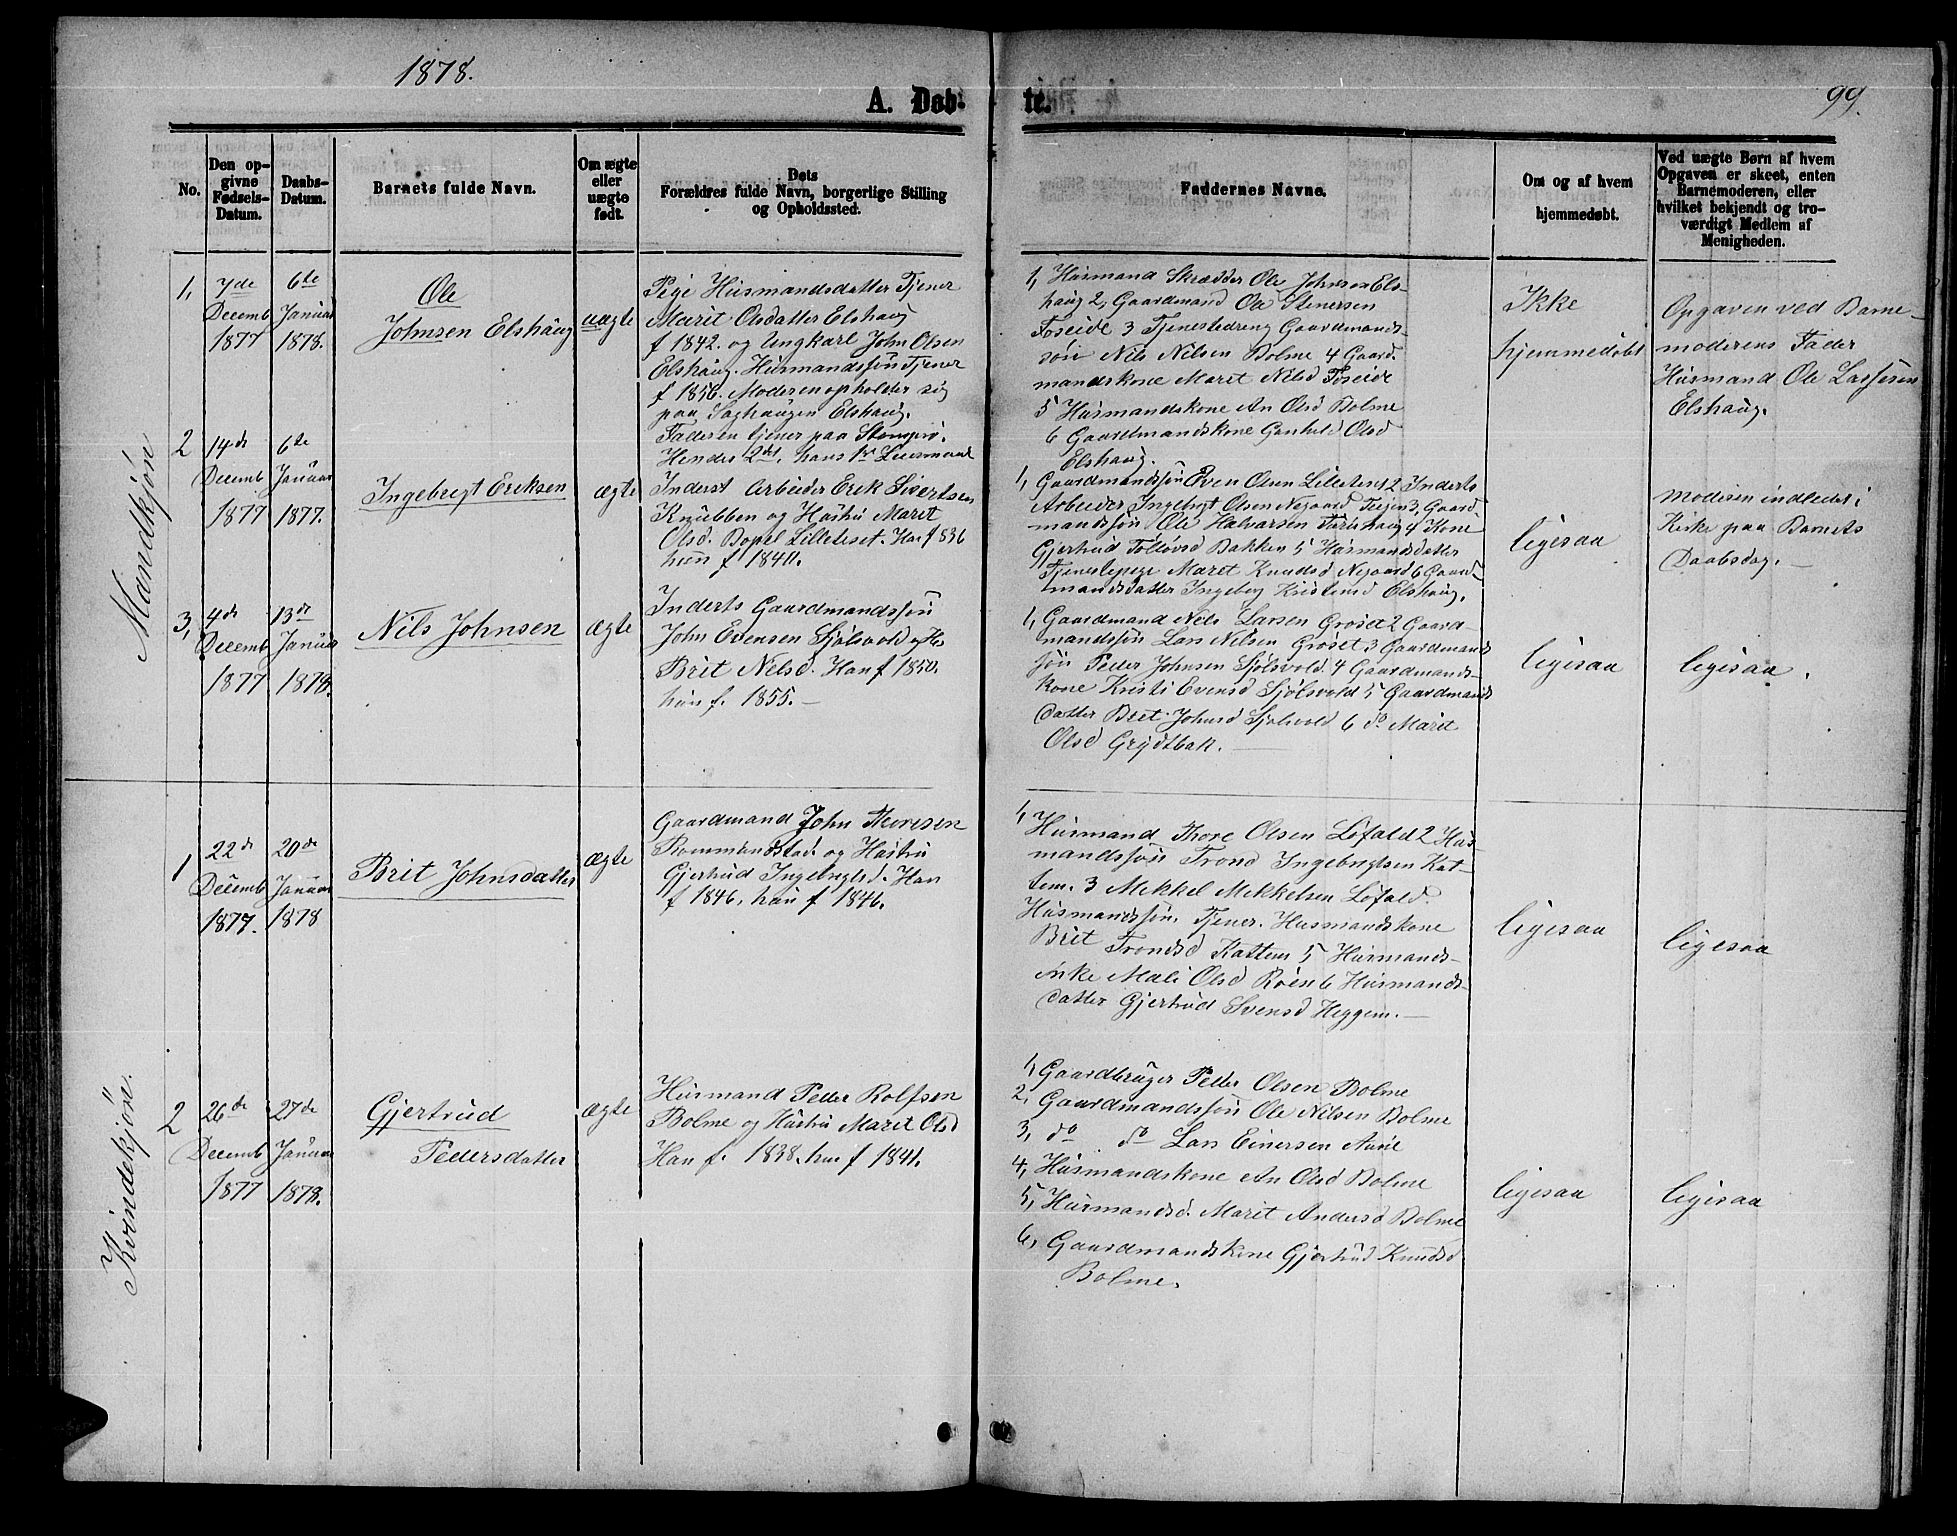 1878.
99.
A. Døb-
te.
No.
Den op-
givne
Fødsels-
Datum.
Daabs-
Datum.
Barnets fulde Navn.
Om ægte
eller
uægte
født.
Dets
Forældres fulde Navn, borgerlige Stilling
og Opholdssted.
Faddernes Navne.
Om og af hvem
hjemmedøbt.
Ved uægte Børn af hvem
Opgaven er skeet, enten
Barnemoderen, eller
hvilket bekjendt og tro-
værdigt Medlem af
Menigheden.
Mandkjøn
1,
7de
Decemb
1877
6te
Januar
1878.
Ole
Johnsen Elshaug
uægte
Pige Husmandsdatter Tjener
Marit Olsdatter Elshaug
f 1842. og Ungkarl John Olsen
Elshaug. Husmandssøn Tjener
f 1856. Moderen opholder sig
paa Saghaugen Elshaug.
Faderen tjener paa
Hendes 2det, hans 1ste Leiermaal
1, Husmand Skrædder Ole Johnsen Els-
haug 2, Gaardmand Ole Stenersen
Foseide 3 Tjenestedreng Gaardmands-
søn Nils Nilsen Bolme 4 Gaard-
mandskone Maret Nilsd Foseide
5 Husmandskone An Olsd Bolme
6 Gaardmandskone Gunhild Olsd
Elshaug.
Ikke
hjemmedøbt
Opgaven ved Barne-
moderens Fader
Husmand Ole Larssen
Elshaug.
2
14de
Decemb
1877
6te
Januar
1877.
Ingebrigt Eriksen
ægte
Inderst Arbeider Erik Sivertsen
Knubben og Hustru Maret
Olsd. Bopel Lilleteset. Han f 836
hun f 1841.
1, Gaardmandssøn Even Olsen Lilletenet 2 Inderts
Arbeider Ingebrigt Olsen Negaard 3, Gaard-
mandssøn Ole Halvorsen 4 Kone
Gjertrud Tollovsd Bakken 5 Husmandsdatter
Tjenestepige Maret Knudsd Negaard 6 Gaard-
mandsdatter Ingeborg Kristensd Elshaug.
ligesaa
Moderen indledet i
Kirke paa Barnets
Daabsdag.
3,
4de
Decemb
1877
13de
Januar
1878.
Nils Johnsen
ægte
Inderts Gaardmandssøn
John Evensen Sjølsvold og Hs
Brit Nelsd. Han f 1850.
hun f. 1855.
1, Gaardmand Nels Larsen Grøset 2 Gaard-
mandssøn Lars Nilsen Grøset 3 Gaardmands
søn Peder Johnsen Sjølsvold. 4 Gaardmands-
kone Kristi Evensd Sjølsvold 5 Gaardmands
datter Brit Johnsd Sjølsvold 6 do Marit
Olsd Grydtbak.
ligesaa
ligesaa.
Kvindekjøn.
1
22de
Decemb
1877.
20de
Januar
1878
Brit Johnsdatter
ægte
Gaardmand John Thoresen
Rommundstad og Hustru
Gjertrud Ingebrigtsd. Han
f 1846, hun f 1846.
1, Husmand Thore Olsen Løfald 2 Hus-
mandssøn Trond Ingebrigtsen Kat-
tem. 3 Mekkel Mekkelsen Løfald.
Husmandssøn, Tjener. Husmandskone
Brit Trondsd Kattem 5 Husmands-
enke Mali Olsd Røen 6 Husmands-
datter Gjertrud Svensd Heggem.
ligesaa
ligesaa
2
26de
Decemb
1877
27de
Januar
1878.
Gjertrud
Pedersdatter
ægte
Husmand Peder Rolfsen
Bolme og Hustru Marit Olsd
Han f. 1838. hun f 1841.
1, Gaardbruger Peder Olsen Bolme
2, Gaardmandssøn Ole Nilsen Bolme
3, do do Lars Einersen Aune
4, Husmandskone An Olsd Bolme
5, Husmandsd. Marit Andersd Bolme
6, Gaardmandskone Gjertrud Knudsd
Bolme.
ligesaa
ligesaa